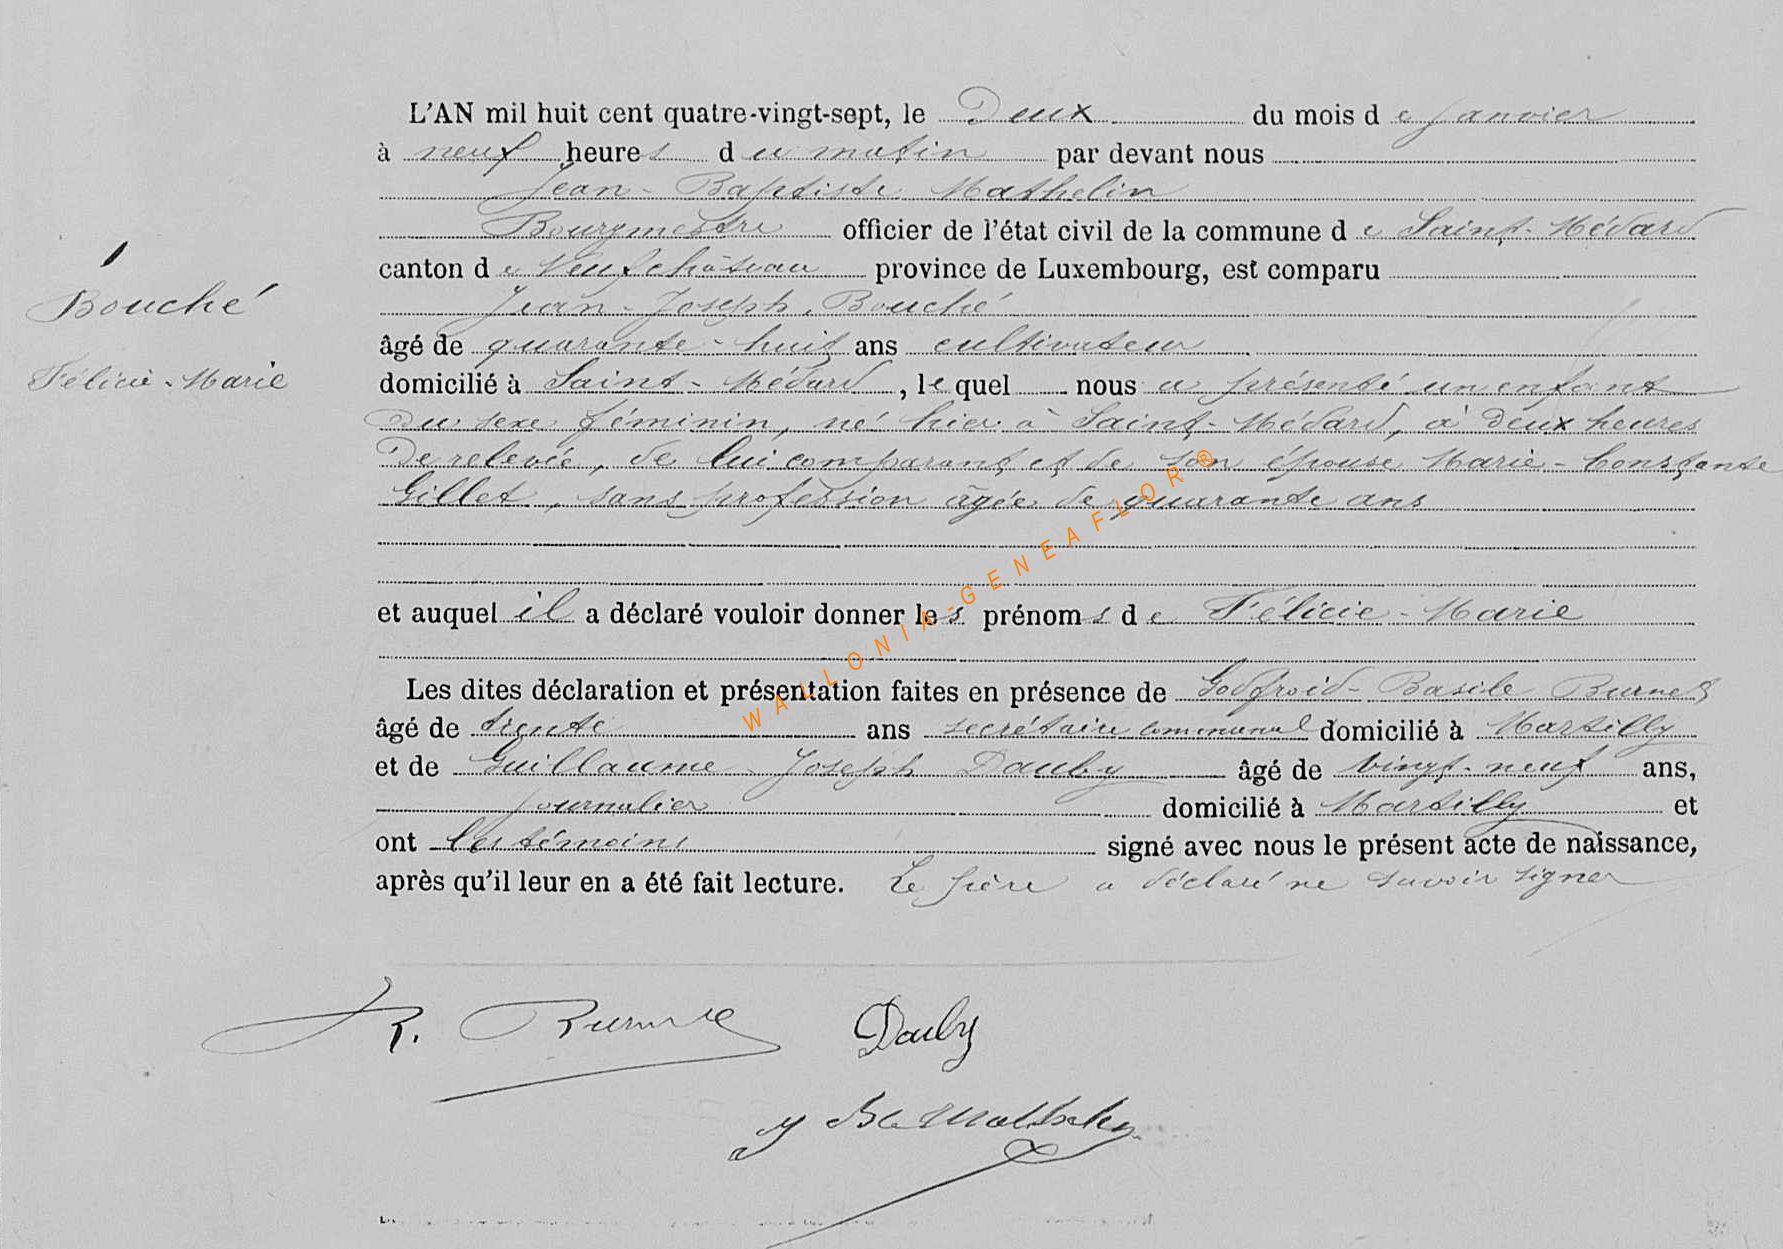 L'AN mil huit cent quatre-vingt-sept, le Deux du mois de janvier
à neuf heures du matin par devant nous
Jean-Baptiste Mathelin
Bourgmestre officier de l'état civil de la commune de Saint-Médard
canton de Neufchâteau province de Luxembourg, est comparu
Jean-Joseph Bouché
Bouché
âgé de quarante-huit ans cultivateur
Félicie-Marie
domicilié à Saint-Médard, lequel nous a présenté un enfant
du sexe féminin, né hier à Saint-Médard, à deux heures
De relevée, de lui comparant et de son épouse Marie-Constante
Gillet, sans profession âgée de quarante ans
et auquel il a déclaré vouloir donner les prénoms de Félicie-Marie
Les dites déclaration et présentation faites en présence de Godfroid-Basile Burnet
âgé de trente ans secrétaire communal domicilié à Martilly
et de Guillaume Joseph Dauby âgé de vingt-neuf ans,
journalier domicilié à Martilly et
ont les témoins signé avec nous le présent acte de naissance,
après qu'il leur en a été fait lecture. Le père a déclaré ne savoir signer
Dauby
WALLONIA-GENEAFLOR®